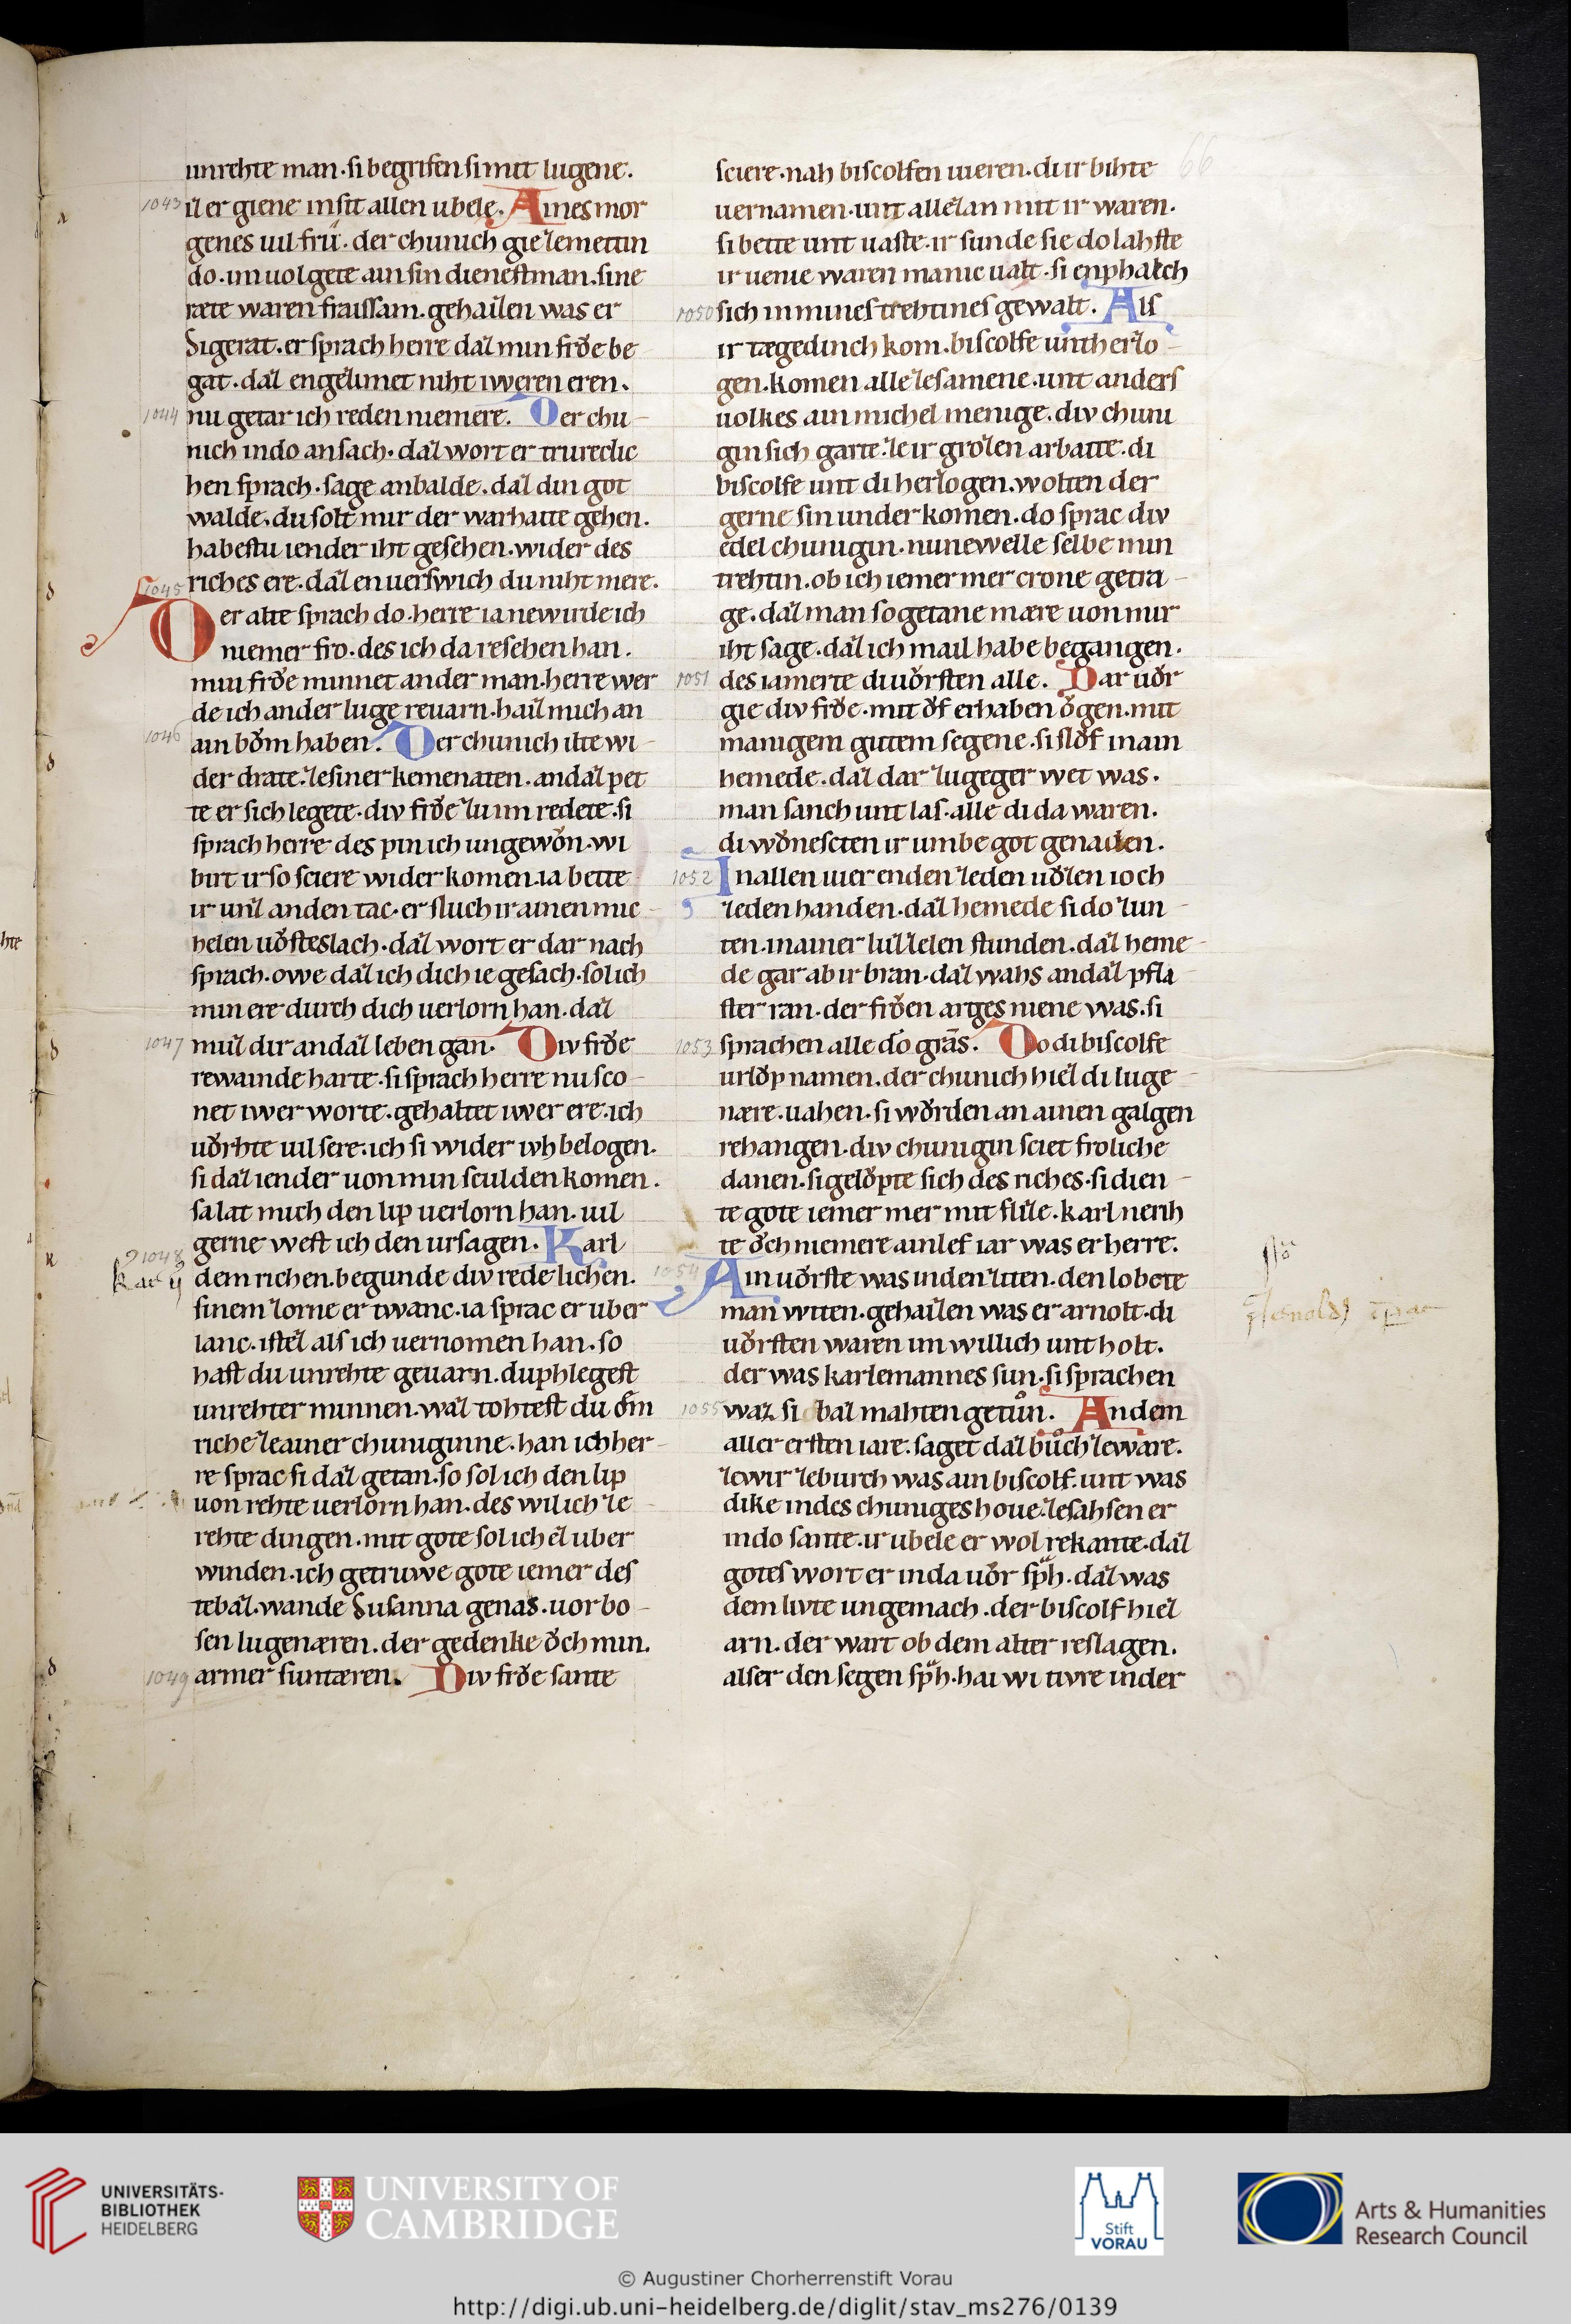 66
unrehte man·si begrifen si mit lugene.
1043 iz er giene in sit allen ubele. Aines mor
genes uil frů·der chunich gie ze mettin
do·im uolgete ain sin dienestman.sine
ræte waren fraissam.gehaizen was er
Sigerat.er sprach herre daz min frŏe be
gat·daz engezimet niht iweren eren.
1044 nu getar ich reden niemere. Der chu-
nich in do ansach·daz wort er trureclic
hen sprach·sage an balde.daz din got
walde.du solt mir der warhaite gehen.
habestu iender iht gesehen.wider des
riches ere.daz en uerswich du niht mere.
1045 Der alte sprach do.herre ia newirde ich
niemer fro.des ich da resehen han.
min frŏe minnet ander man.herre wer
de ich an der luge reuarn.haiz mich an
1046 ain bŏm haben. Der chunich ilte wi-
der drate.ze siner kemenaten.an daz pet
te er sich legete.div frŏe zu im redete.si
sprach herre des pin ich ungewŏn.wi
birt ir so sciere wider komen.ia bette
ir unz an den tac.er sluch ir ainen mic-
helen uŏsteslach.daz wort er dar nach
sprach.owe daz ich dich ie gesach.sol ich
min ere durch dich uerlorn han.daz
1047 muz dir an daz leben gan. Div frŏe
rewainde harte.si sprach herre nu sco-
net iwer worte.gehaltet iwer ere.ich
uŏrhte uil sere.ich si wider iwh belogen.
si daz iender uon min sculden komen.
sa lat mich den lip uerlorn han.uil
1048 gerne west ich den ursagen. Karl
dem richen.begunde div rede lichen.
sinem zorne er twanc.ia sprac er uber
lanc.ist ez als ich uernomen han.so
hast du unrehte geuarn.du phlegest
unrehter minnen.waz tohtest du ŏm
riche ze ainer chuniginne.han ich her-
re sprac si daz getan.so sol ich den lip
uon rehte uerlorn han.des wil ich ze
rehte dingen.mit gote sol ich ez uber
winden.ich getruwe gote iemer des
te baz.wande Susanna genas.uor bo-
sen lugenæren.der gedenke ŏch min.
1049 armer suntæren. Div frŏe sante
sciere.nah biscolfen uieren.di ir bihte
uernamen.unt allez an mit ir waren.
si bette unt uaste.ir sunde sie do lahste
ir uenie waren manic ualt.si enphalch
1050 sich in mines trehtines gewalt. Als
ir tægedinch kom.biscolfe unt herzo-
gen.komen alle zesamene.unt anders
uolkes ain michel menige.div chuni
gin sich garte.ze ir grozen arbaite.di
biscolfe unt di herzogen.wolten der
gerne sin under komen.do sprac div
edel chunigin.nu newelle selbe min
trehtin.ob ich iemer mer crone getra-
ge.daz man so getane mære uon mir
iht sage.daz ich mail habe begangen.
1051 des iamerte di uŏrsten alle. Dar uŏr
gie div frŏe.mit ŏf erhaben ŏgen.mit
manigem gutem segene.si slŏf in ain
hemede.daz dar zu gegerwet was.
man sanch unt las.alle di da waren.
di wŏnescten ir umbe got genaden.
1052 In allen uier enden zeden uŏzen ioch
zeden handen.daz hemede si do zun-
ten.in ainer luzzelen stunden.daz heme-
de gar ab ir bran.daz wahs an daz pfla-
ster ran.der frŏen arges niene was.si
1053 sprachen alle dŏ grās. Do di biscolfe
urlŏp namen.der chunich hiez di luge-
nære.uahen.si wŏrden an ainen galgen
rehangen.div chunigin sciet froliche
danen.si gelŏpte sich des riches.si dien-
te gote iemer mer mit flize.karl nerih
te ŏch niemere ainlef iar was er herre.
1054 Ain uŏrste was in den ziten.den lobete
man witen.gehaizen was er arnolt.di
uŏrsten waren im willich unt holt.
der was karlemannes sun.si sprachen
1055 waz si baz mahten getůn. An dem
aller ersten iare.saget daz bůch zeware.
zewirzeburch was ain biscolf.unt was
dike in des chuniges houe.ze sahsen er
in do sante.ir ubele er wol rekante.daz
gotes wort er in da uŏr spͣh.daz was
dem livte ungemach.der biscolf hiez
arn.der wart ob dem alter reslagen.
alser den segen spͣh.hai wi tivre in der
UNIVERSITÄTS-
BIBLIOTHEK
HEIDELBERG
UNIVERSITY OF
CAMBRIDGE
Stift
VORAU
Arts & Humanities
Research Council
© Augustiner Chorherrenstift Vorau
http://digi.ub.uni-heidelberg.de/diglit/stav_ms276/0139